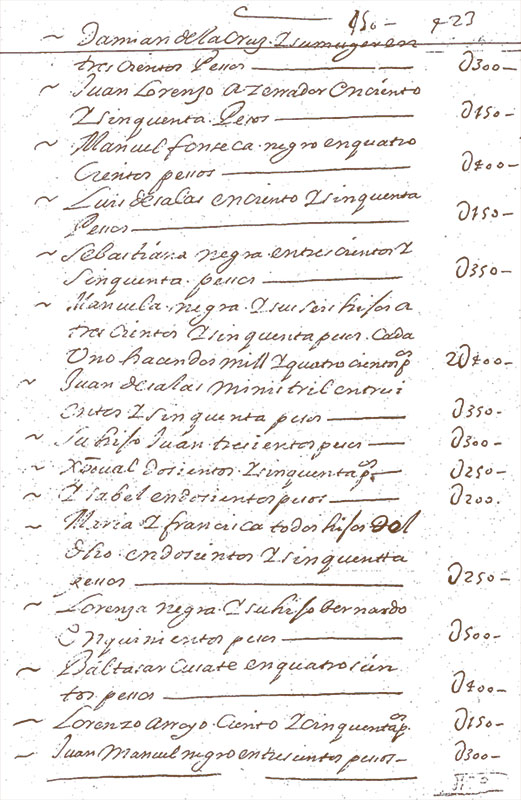 150 — 423
~ Damian de la Cruz. Y su muger en
tres cientos Pesos — Ə300—
~ Juan Lorenzo azerrador en ciento
Y sinquenta Pesos — Ə150—
~ Manuel fonseca negro en quatro
Cientos pessos — Ə400—
~ Luis de salas en ciento Y sinquenta
Pessos — Ə150—
~ Sebastiana negra. en tres cientos Y
sinquenta pessos — Ə350—
~ Manuela. negra. Y sus seis hijos a
tres Cientos Y sinquenta pesos. Cada
Uno hacen dos mill Y quatro cientos ps 2Ə400—
~ Juan de salas ministril en tres si
entos Y sinquenta pesos — Ə350—
~ su hijo Juan tresientos pesos — Ə300—
~ Xptoual dosientos. Y sinquenta ps. — Ə250—
~ Y sabel en dosientos pesos — Ə200.
~ Maria Y francisca todos hijos del
dho. en dosientos Y sinquentta
pessos — Ə250—
~ Lorenza negra. Y su hijo bernardo
en quinientos pesos — Ə500—
~ Baltasar en quatrosien
tos pessos — Ə400—
~ Lorenzo Arroyo. Ciento Y cinquenta ps. Ə150—
~ Juan Manuel negro en tres sientos pesos— Ə300—